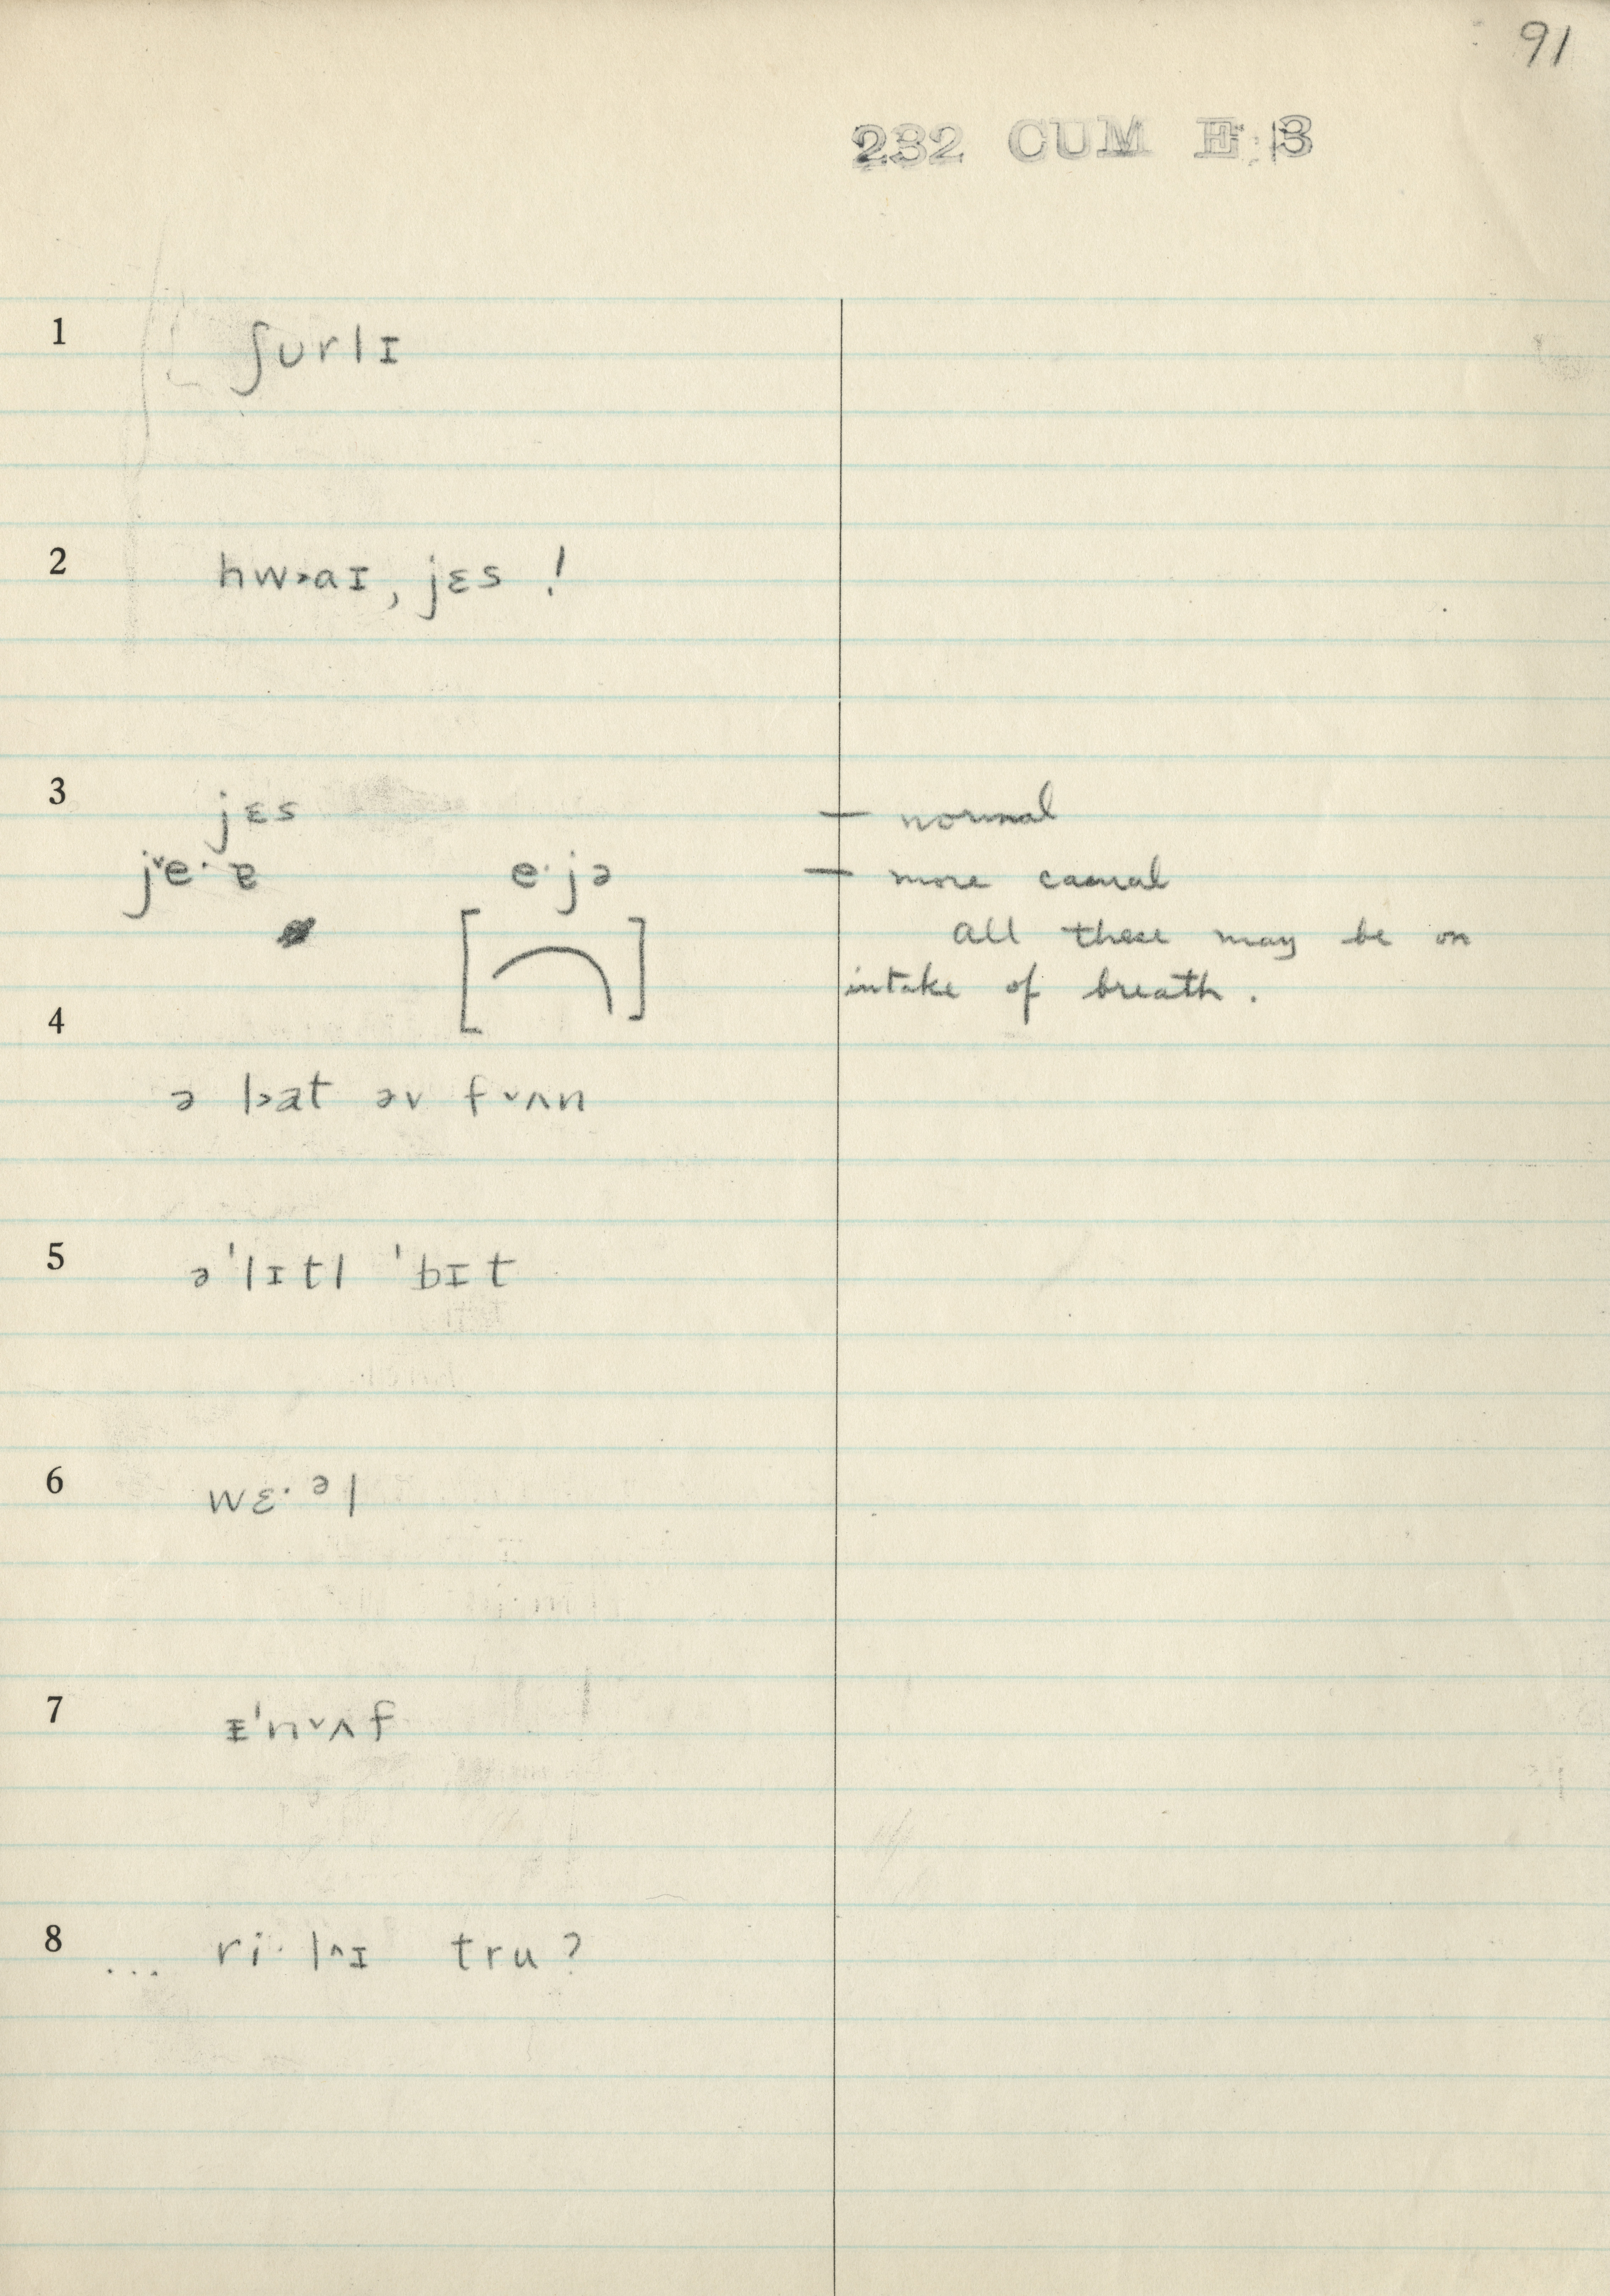 91
232 CUM E 3
1 ʃʊrlɪ
2 hw˃aɪ, jɛs !
3 jɛs — normal
jˇe· ɐ e·jə — more casual
all these may be on
[ ] intake of breath.
4
ə l˃at əv fˇʌn
5 ə ˈlɪtl ˈbɪt
6 wɛ·ᵊl
7 ɪˈnˇʌf
8 ... ri·l^ɪ tru?